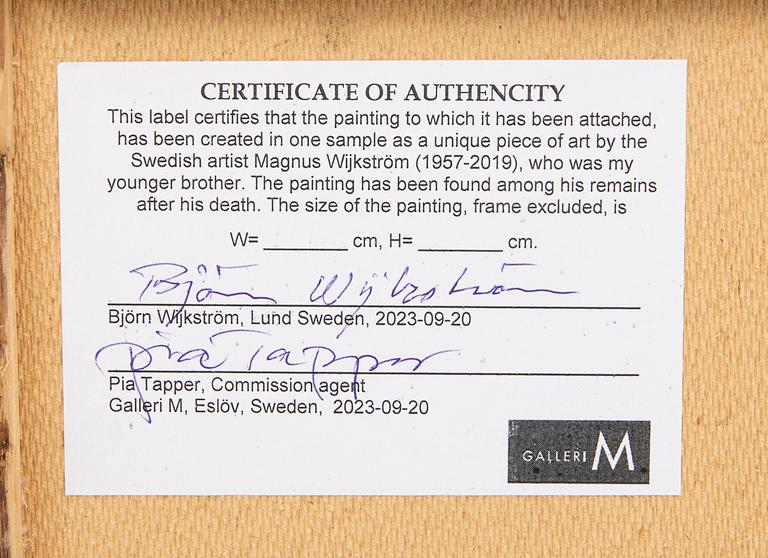 CERTIFICATE OF AUTHENCITY
This label certifies that the painting to which it has been attached,
has been created in one sample as a unique piece of art by the
Swedish artist Magnus Wijkström (1957-2019), who was my
younger brother. The painting has been found among his remains
after his death. The size of the painting, frame excluded, is
W= ________ cm, H= ________ cm.
Björn Wijkström
Björn Wijkström, Lund Sweden, 2023-09-20
Pia Tapper
Pia Tapper, Commission agent
Galleri M, Eslöv, Sweden, 2023-09-20
GALLERI M